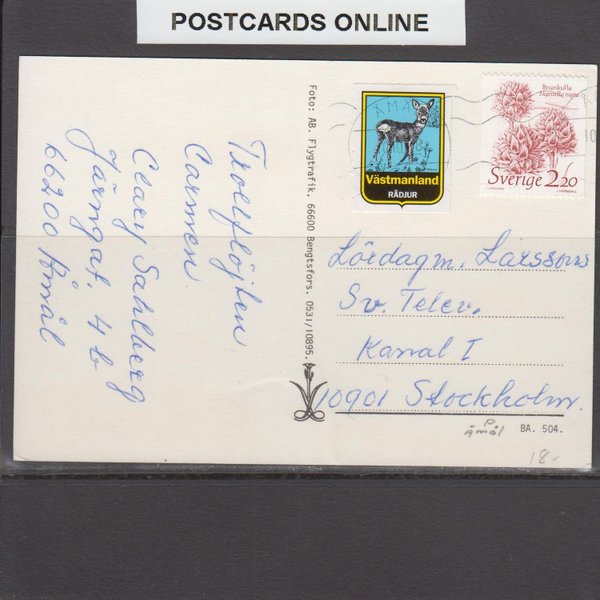 POSTCARDS ONLINE
Trollflöjten
Carmen
Clary Sahlberg
Järngat. 4 b
66200 Åmål
Foto: AB. Flygtrafik. 66600 Bengtsfors. 0531/10895.
ÅMÅL
Västmanland
RÅDJUR
Brunkulla
Nigritella nigra
Sverige 2.20
Lördagm. Larssons
Sv. Telev.
Kanal I
10901 Stockholm.
P
åmål
BA. 504.
18.-